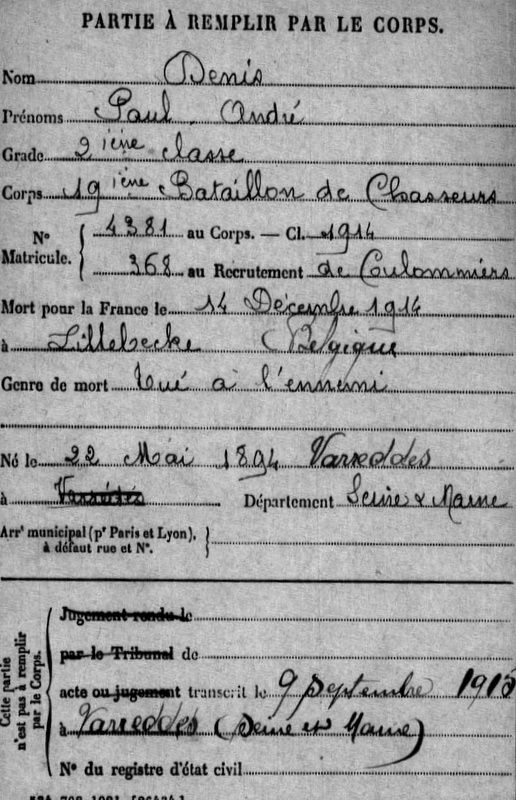 PARTIE À REMPLIR PAR LE CORPS.
Nom Denis
Prénoms Paul André
Grade 2ième classe
Corps 19ième Bataillon de Chasseurs
N° Matricule. 4381 au Corps. — Cl. 1914
368 au Recrutement de Coulommiers
Mort pour la France le 14 Décembre 1914
à Lillebecke Belgique
Genre de mort tué à l'ennemi
Né le 22 Mai 1894 Varreddes
à Varrétés Département Seine & Marne
Arrt municipal (pr Paris et Lyon),
à défaut rue et N°.
Cette partie n'est pas à remplir par le Corps.
Jugement rendu le
par le Tribunal de
acte ou jugement transcrit le 9 Septembre 1915
à Varreddes (Seine et Marne)
N° du registre d'état civil